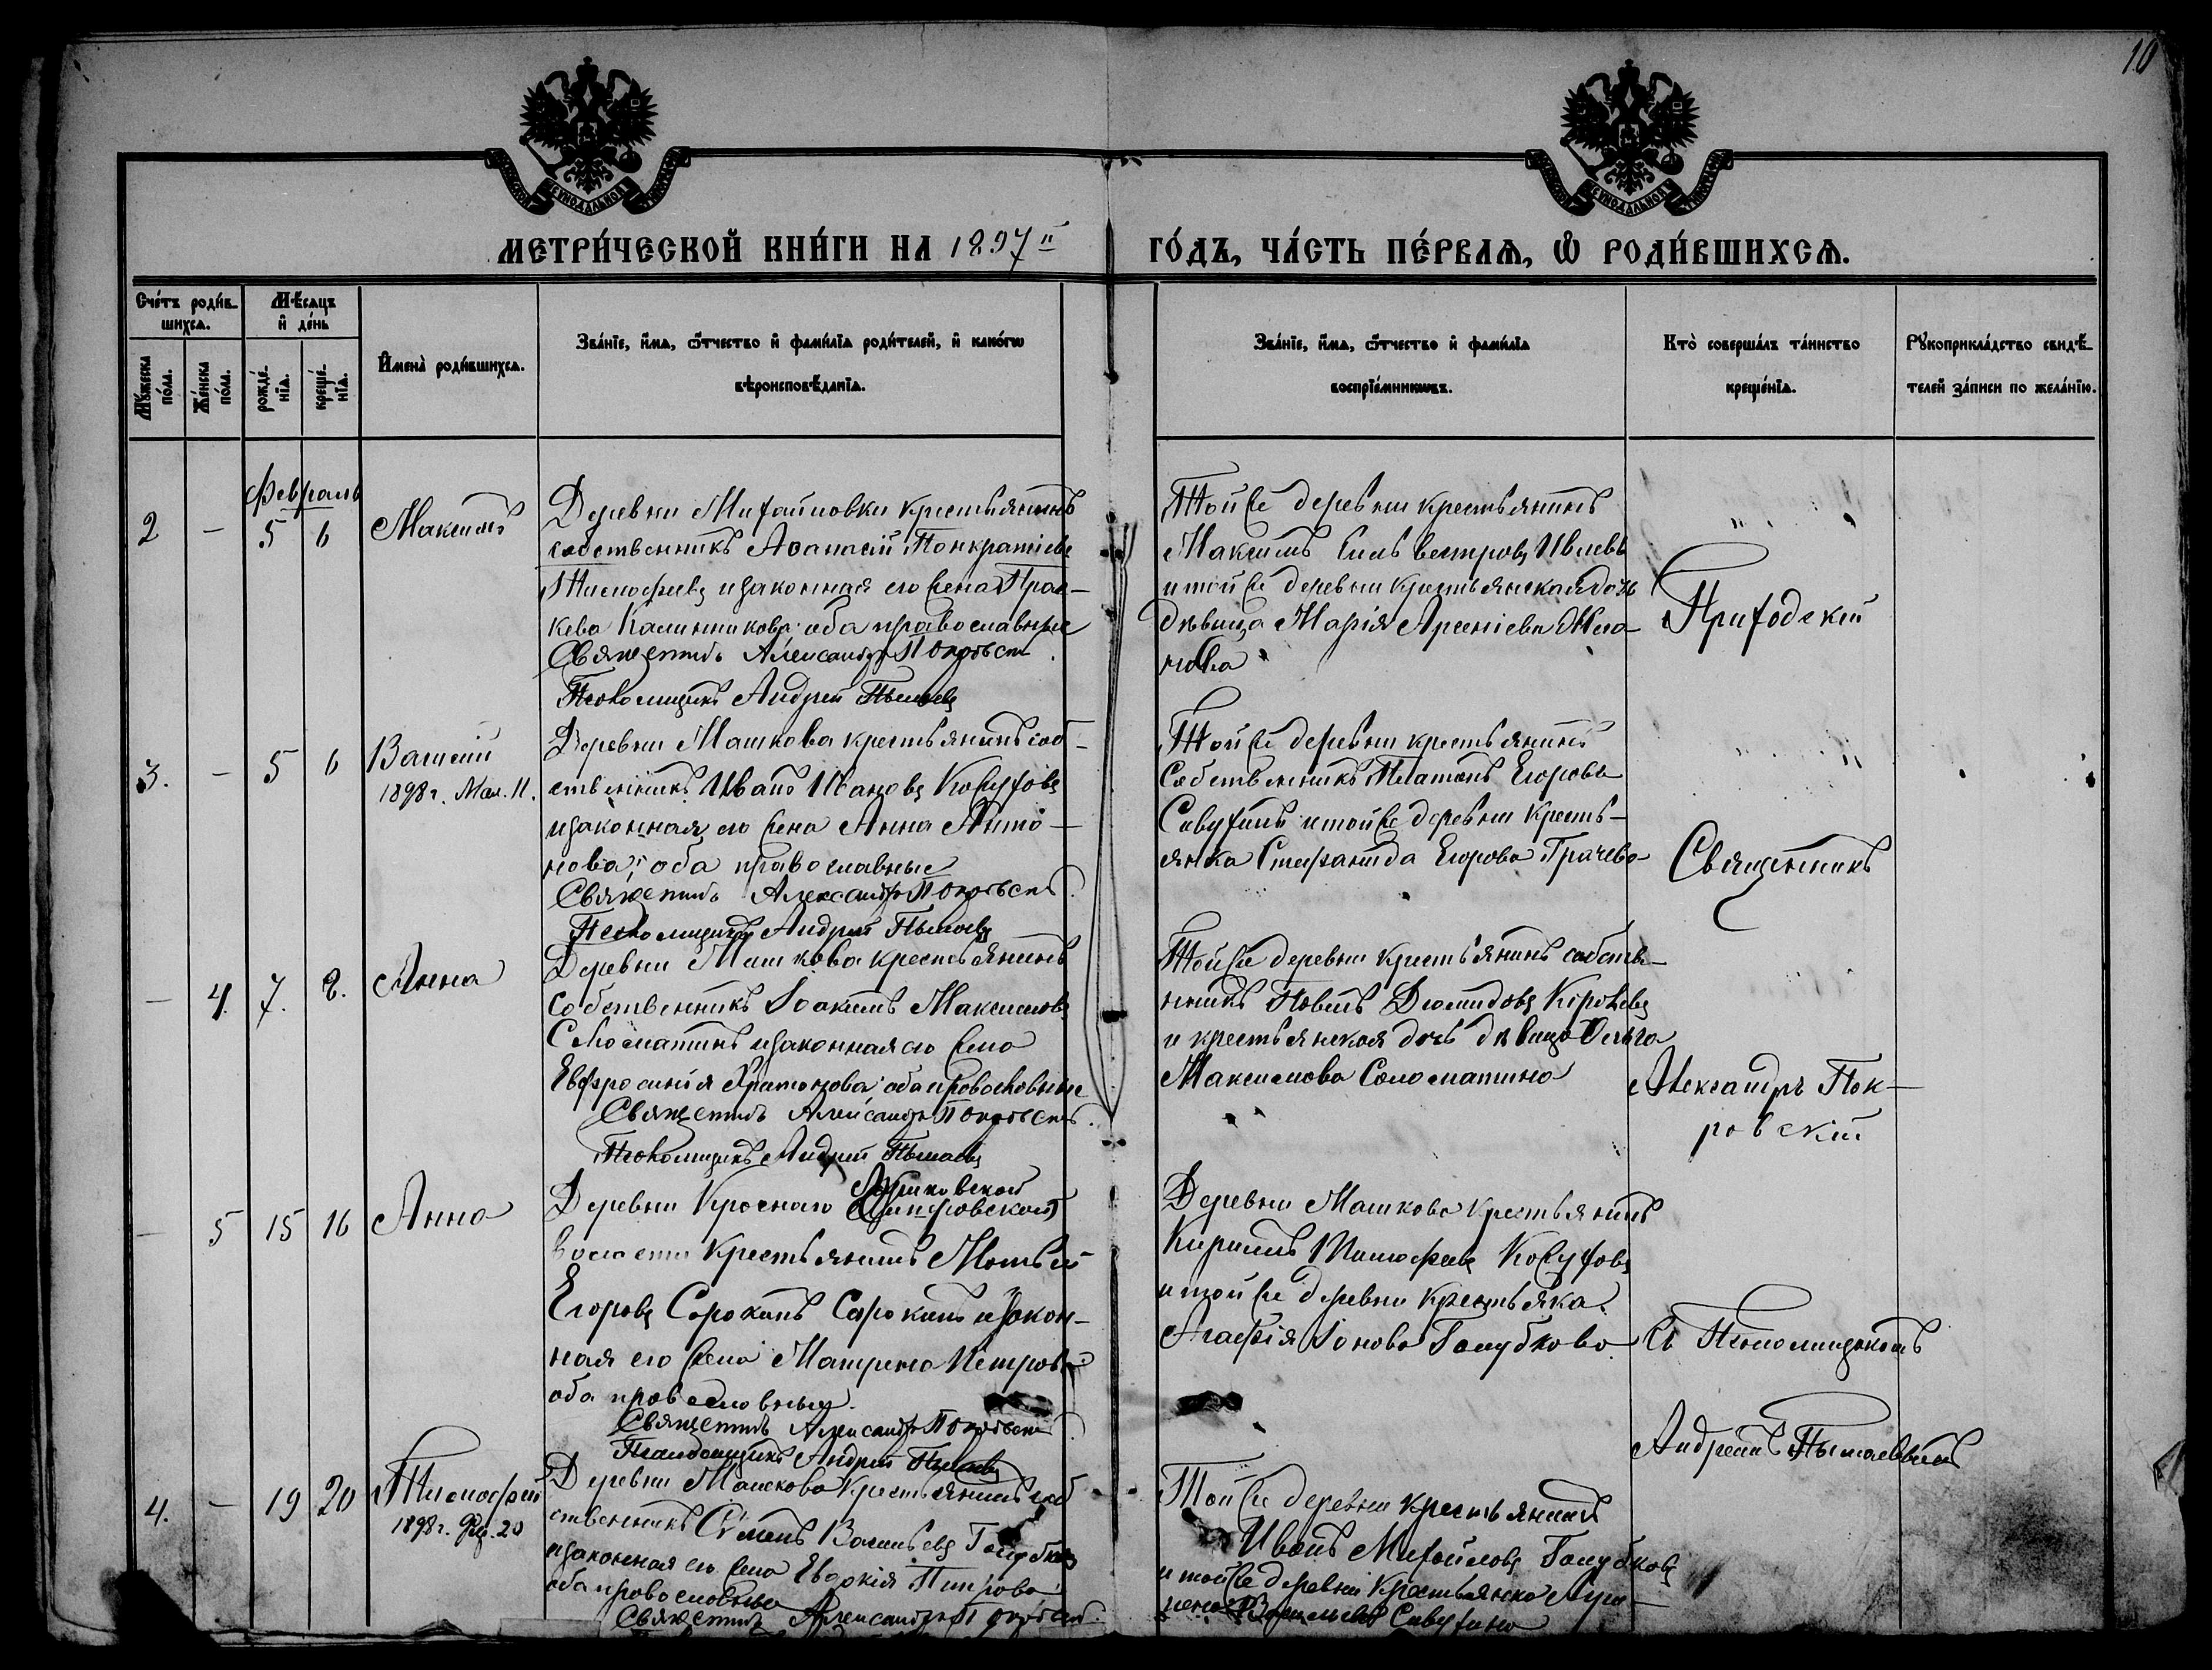 10
МЕТРИ́ЧЕСКОЙ КНИ́ГИ НА 1897 й ГО́ДЪ, ЧА́СТЬ ПЕ́РВАѦ, Ѡ РОДИ́ВШИХСѦ.
Сче́тъ роди́в-
шихсѧ.
Мѣ́сѧцъ
и де́нь
Мꙋ́жеска
по́ла.
Же́нска
по́ла.
рожде́-
нїѧ.
креще́-
нїѧ.
И҆мена̀ роди́вшихсѧ.
Зва́нїе, и҆́мѧ, ѻ҆́тчество и҆ фами́лїѧ роди́телей, и҆ како́гѡ
вѣроисповѣ́данїѧ.
Зва́нїе, и҆́мѧ, ѻ҆́тчество и҆ фами́лїѧ
воспрїе́мникѡвъ.
Кто̀ соверша́лъ та́инство
креще́нїѧ.
Рꙋкоприкла́дство свидѣ́-
телей за́писи по жела́нїю.
Февраль
2 - 5 6 Максимъ
Деревни Михайловки крестьянинъ
собственникъ Аѳанасій Понкратіевъ
Тимофеевъ и законная его жена Прас-
кева Калинникова оба православные
Священникъ Александръ Покровскій
Псаломщикъ Андрей
Той же деревни крестьянинъ
Максимъ Сильвестровъ Ивлевъ
и той же деревни крестьянская дочь
дѣвица Марія Арсеніева
3. - 5 6 Василій
1898 г.
Деревни Машкова крестьянинъ соб-
ственникъ Иванъ Ивановъ Кожуховъ
и законная его жена Анна Анто-
нова; оба православные
Священникъ Александръ Покровскій
Псаломщикъ Андрей
Той же деревни крестьянинъ
Собственникъ Платонъ Егоровъ
Савухинъ и той же деревни кресть-
янка Стефанида Егорова Грачева
- 4. 7. 8. Анна
Деревни Машкова крестьянинъ
собственникъ Іоакимъ Максимовъ
Соломатинъ и законная его жена
Евфросинія Харитонова; оба православные
Священникъ Александръ Покровскій
Псаломщикъ Андрей
Той же деревни крестьянинъ собств-
нникъ Павелъ Діомидовъ
и крестьянская дочь дѣвица Ольга
Максимова Соломатина
- 5 15 16 Анна
Деревни Краснаго
волости крестьянинъ Матвѣй
Егоровъ Сорокинъ Сарокинъ и закон-
ная его жена Матрена Петрова
оба православные.
Священникъ Александръ Покровскій
Псаломщикъ Андрей
Деревни Машкова крестьянинъ
Кирилъ Тимофеевъ Кожуховъ
и той же деревни крестьяка
Агафія Іонова Голубкова
4. - 19 20 Тимофей
1898 г. 20
Деревни Машкова крестьянинъ соб
ственникъ Симеонъ Васильевъ Голубковъ
и законная его жена Евдокія Петрова
оба православные
Священникъ Александръ Покровскій
Той же деревни крестьянинъ
Иванъ Михайловъ Голубковъ
и той же деревни крестьянка
Васильева Савухина
Приходскій
Священникъ
Александръ Пок-
ровскій
съ Псаломщикомъ
Андреемъ